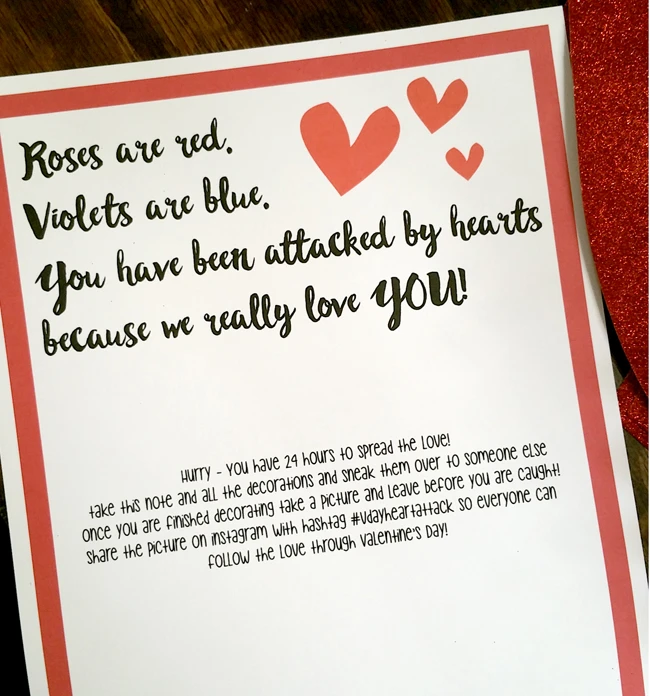 Roses are red.
Violets are blue.
You have been attacked by hearts
because we really love YOU!
Hurry - you have 24 hours to spread the love!
take this note and all the decorations and sneak them over to someone else
once you are finished decorating take a picture and leave before you are caught!
share the picture on instagram with hashtag #vdayheartattack so everyone can
follow the love through valentine's day!